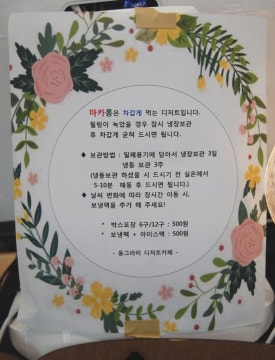 마카롱은 차갑게 먹는 디저트입니다.
필링이 녹았을 경우 잠시 냉장보관
후 차갑게 굳혀 드시면 됩니다.
◆ 보관방법 : 밀폐용기에 담아서 냉장보관 3일
냉동 보관 3주
(냉동보관 하셨을 시 드시기 전 실온에서
5-10분 해동 후 드시면 됩니다.)
◆ 날씨 변화에 따라 장시간 이동 시,
보냉팩을 추가 해 주세요!
* 박스포장 6구/12구 : 500원
* 보냉팩 + 아이스팩 : 500원
- 동그라미 디저트카페 -